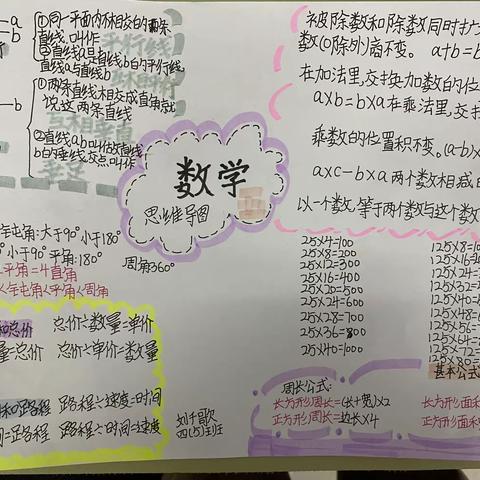 a
b
①同一平面内不相交的两条
直线,叫作平行线
②直线a是直线b的平行线,
直线a与直线b
①两条直线相交成直角就
说这两条直线
②直线a叫作直线
b的垂线,交点叫作
垂足
b
数学
思维导图
被除数和除数同时扩
数(0除外)商不变。 a+b=b
在加法里,交换加数的位
a×b=b×a 在乘法里,交换
乘数的位置积不变。(a-b)×
a×c-b×a 两个数相减的
以一个数,等于两个数与这个数
钝角:大于90°小于180°
小于90° 平角:180°
周角360°
平角=4直角
<钝角<平角<周角
和总价 总价÷数量=单价
量=总价 总价÷单价=数量
和路程 路程÷速度=时间
间=路程 路程÷时间=速度
刘子歌
四(5)班
25×4=100
25×8=200
25×12=300
25×16=400
25×20=500
25×24=600
25×28=700
25×36=800
25×40=1000
125×8=10
125×16=
125×24=
125×32=
125×40=
125×48=
125×56=
125×64=
125×72=
125×80=
基本公式
周长公式:
长方形周长=(长+宽)×2
正方形周长=边长×4
长方形面积
正方形面积